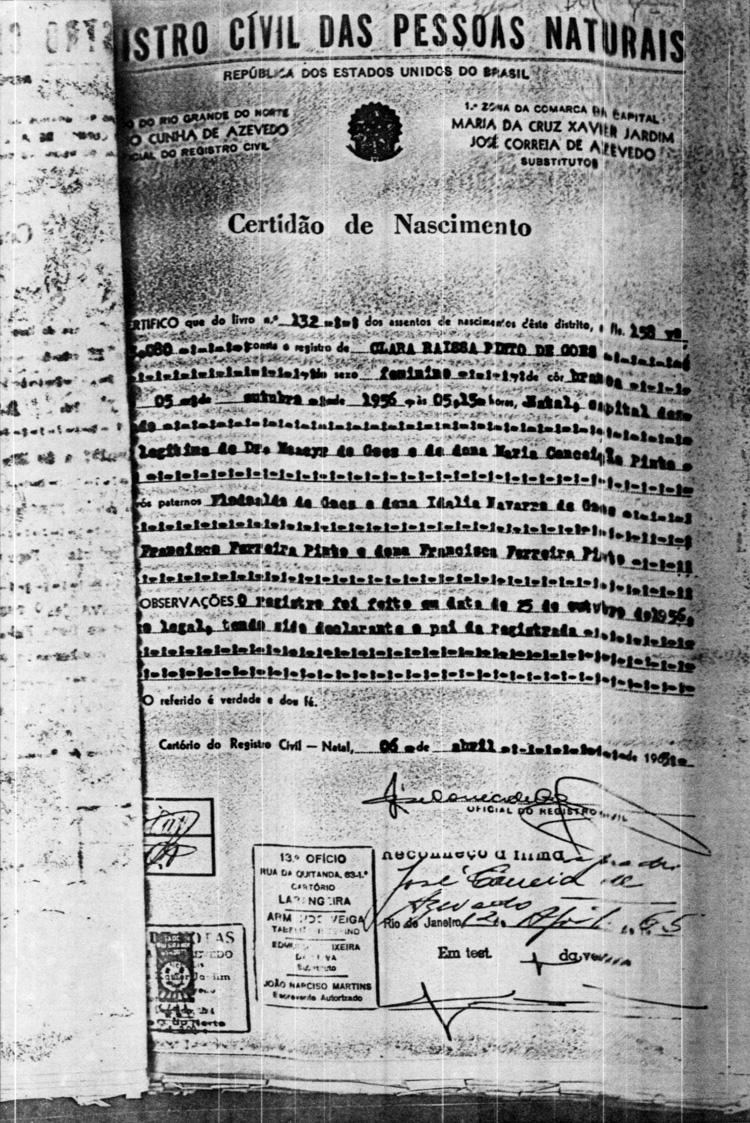 ISTRO CÍVIL DAS PESSOAS NATURAIS
REPÚBLICA DOS ESTADOS UNIDOS DO BRASIL
DO RIO GRANDE DO NORTE
O CUNHA DE AZEVEDO
CIAL DO REGISTRO CIVIL
1.ª ZONA DA COMARCA DA CAPITAL
MARIA DA CRUZ XAVIER JARDIM
JOSÉ CORREIA DE AZEVEDO
SUBSTITUTOS
Certidão de Nascimento
ERTIFICO que do livro n.º 132 dos assentos de nascimentos dêste distrito, a fls. 158 vº.
.080 consta o registro de CLARA RAISSA PINTO DE GOES
do sexo feminino de côr branca
05 de outubro de 1956 às 05,15 horas, Natal, capital dese
do
legítima de Dr. Moacyr de Goes e de dona Maria Conceição Pinto
ós paternos Fiodoaldo de Goes e dona Idalia Navarro de Goes
Francisco Ferreira Pinto e dona Francisca Ferreira Pinto
OBSERVAÇÕES O registro foi feito em data de 25 de outubro de 1956,
o legal, tendo sido declarante o pai da registrada
O referido é verdade e dou fé.
Cartório do Registro Civil — Natal, 06 de abril de 196
OFICIAL DO REGISTRO CIVIL
13.º OFÍCIO
RUA DA QUITANDA, 63-1.º
CARTÓRIO
LARANGEIRA
VEIGA
TEIXEIRA
Substituto
JOÃO NARCISO MARTINS
Escrevente Autorizado
Reconheço a firma
José Correia de
Azevedo
Rio de Janeiro, 12 de April 65
Em test. da verda
NOTAS
VEDO
Xavier Jardim
do Norte